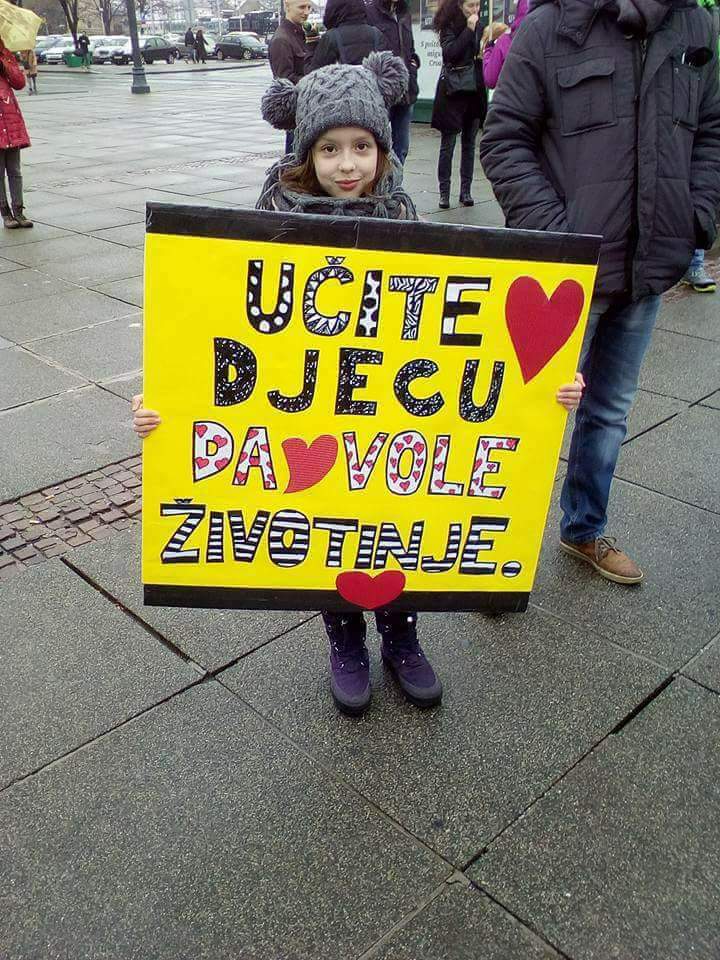 UČITE
DJECU
DA VOLE
ŽIVOTINJE.